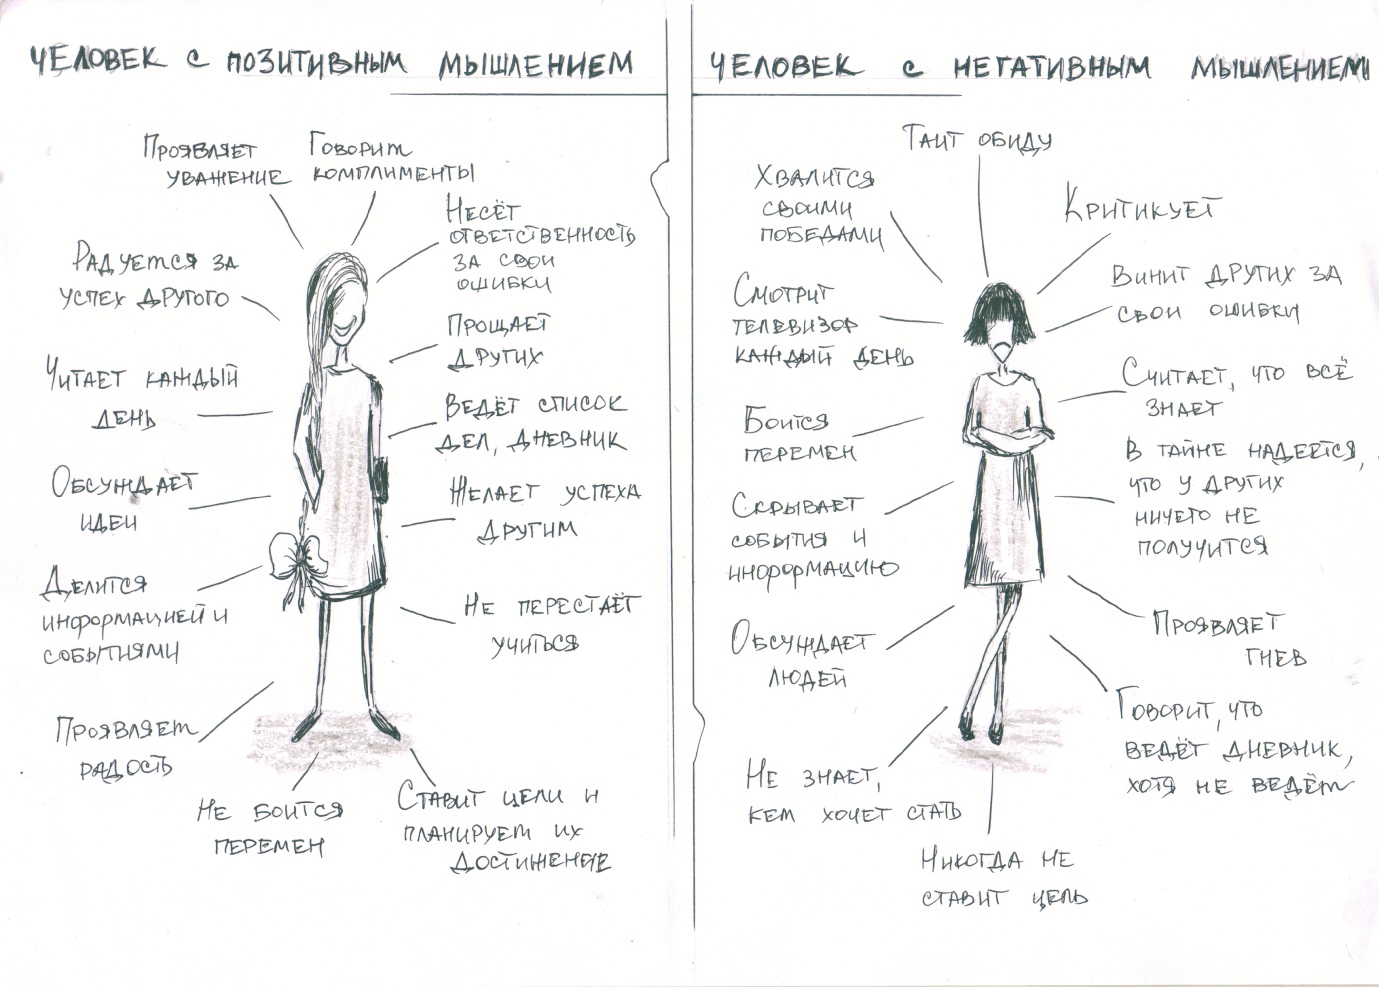 ЧЕЛОВЕК С ПОЗИТИВНЫМ МЫШЛЕНИЕМ
ПРОЯВЛЯЕТ
УВАЖЕНИЕ
ГОВОРИТ
КОМПЛИМЕНТЫ
НЕСЁТ
ОТВЕТСТВЕННОСТЬ
ЗА СВОИ
ОШИБКИ
РАДУЕТСЯ ЗА
УСПЕХ ДРУГОГО
ПРОЩАЕТ
ДРУГИХ
ЧИТАЕТ КАЖДЫЙ
ДЕНЬ
ВЕДЁТ СПИСОК
ДЕЛ, ДНЕВНИК
ОБСУЖДАЕТ
ИДЕИ
ЖЕЛАЕТ УСПЕХА
ДРУГИМ
ДЕЛИТСЯ
ИНФОРМАЦИЕЙ И
СОБЫТИЯМИ
НЕ ПЕРЕСТАЁТ
УЧИТЬСЯ
ПРОЯВЛЯЕТ
РАДОСТЬ
НЕ БОИТСЯ
ПЕРЕМЕН
СТАВИТ ЦЕЛИ И
ПЛАНИРУЕТ ИХ
ДОСТИЖЕНИЕ
ЧЕЛОВЕК С НЕГАТИВНЫМ МЫШЛЕНИЕМ
ТАИТ ОБИДУ
ХВАЛИТСЯ
СВОИМИ
ПОБЕДАМИ
КРИТИКУЕТ
СМОТРИТ
ТЕЛЕВИЗОР
КАЖДЫЙ ДЕНЬ
ВИНИТ ДРУГИХ ЗА
СВОИ ОШИБКИ
БОИТСЯ
ПЕРЕМЕН
СЧИТАЕТ, ЧТО ВСЁ
ЗНАЕТ
СКРЫВАЕТ
СОБЫТИЯ И
ИНФОРМАЦИЮ
В ТАЙНЕ НАДЕЕТСЯ,
ЧТО У ДРУГИХ
НИЧЕГО НЕ
ПОЛУЧИТСЯ
ОБСУЖДАЕТ
ЛЮДЕЙ
ПРОЯВЛЯЕТ
ГНЕВ
НЕ ЗНАЕТ,
КЕМ ХОЧЕТ СТАТЬ
ГОВОРИТ, ЧТО
ВЕДЁТ ДНЕВНИК,
ХОТЯ НЕ ВЕДЁТ
НИКОГДА НЕ
СТАВИТ ЦЕЛЬ